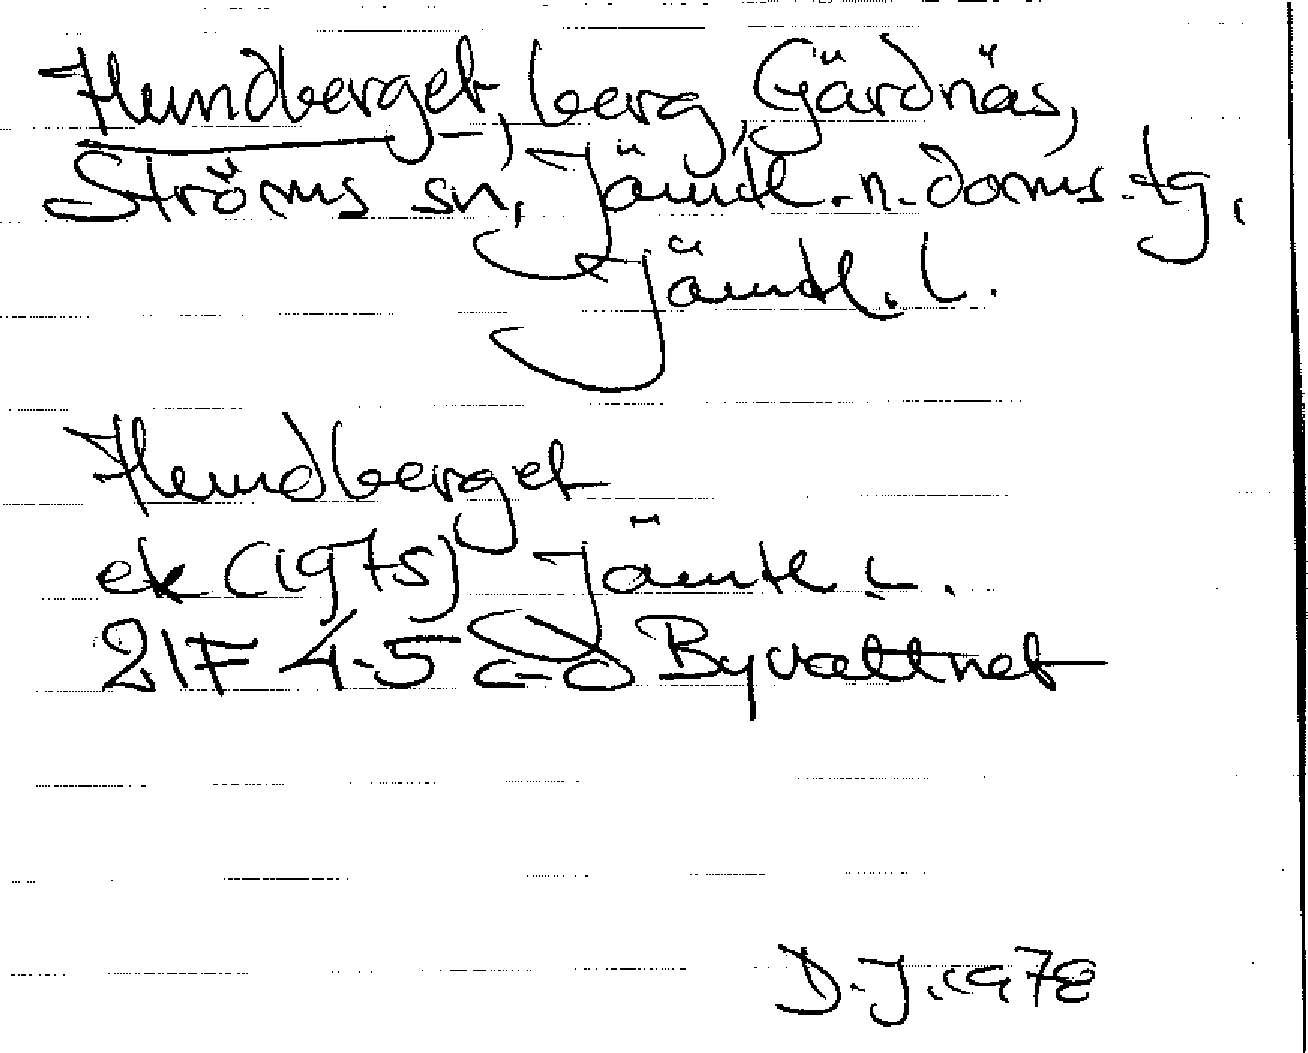 Hundberget, berg, Gärdnäs,
Ströms sn, Jämtl. n. doms. tg,
Jämtl. l.
Hundberget
ek (1975) Jämtl L.
21F 4-5 c-d Byvattnet
D.J. 1978